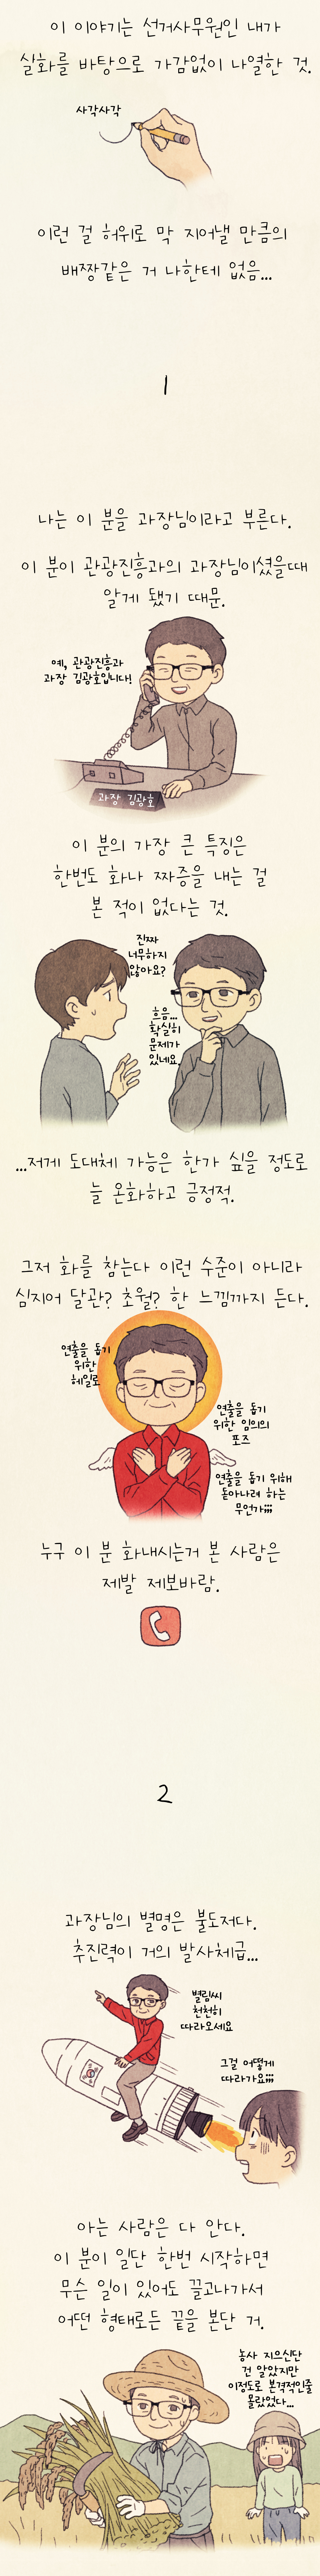 이 이야기는 선거사무원인 내가
실화를 바탕으로 가감없이 나열한 것.
사각사각
이런 걸 허위로 막 지어낼 만큼의
배짱같은 거 나한테 없음...
1
나는 이 분을 과장님이라고 부른다.
이 분이 관광진흥과의 과장님이셨을때
알게 됐기 때문.
예, 관광진흥과
과장 김광호입니다!
과장 김광호
이 분의 가장 큰 특징은
한번도 화나 짜증을 내는 걸
본 적이 없다는 것.
진짜
너무하지
않아요?
흐음...
확실히
문제가
있네요.
...저게 도대체 가능은 한가 싶을 정도로
늘 온화하고 긍정적.
그저 화를 참는다 이런 수준이 아니라
심지어 달관? 초월? 한 느낌까지 든다.
연출을 돕기
위한
헤일로
연출을 돕기
위한 임의의
포즈
연출을 돕기 위해
돋아나려 하는
무언가;;;
누구 이 분 화내시는거 본 사람은
제발 제보바람.
2
과장님의 별명은 불도저다.
추진력이 거의 발사체급...
별림씨
천천히
따라오세요
그걸 어떻게
따라가요;;;
아는 사람은 다 안다.
이 분이 일단 한번 시작하면
무슨 일이 있어도 끌고나가서
어떤 형태로든 끝을 본단 거.
농사 지으신단
건 알았지만
이정도로 본격적인줄
몰랐었다...